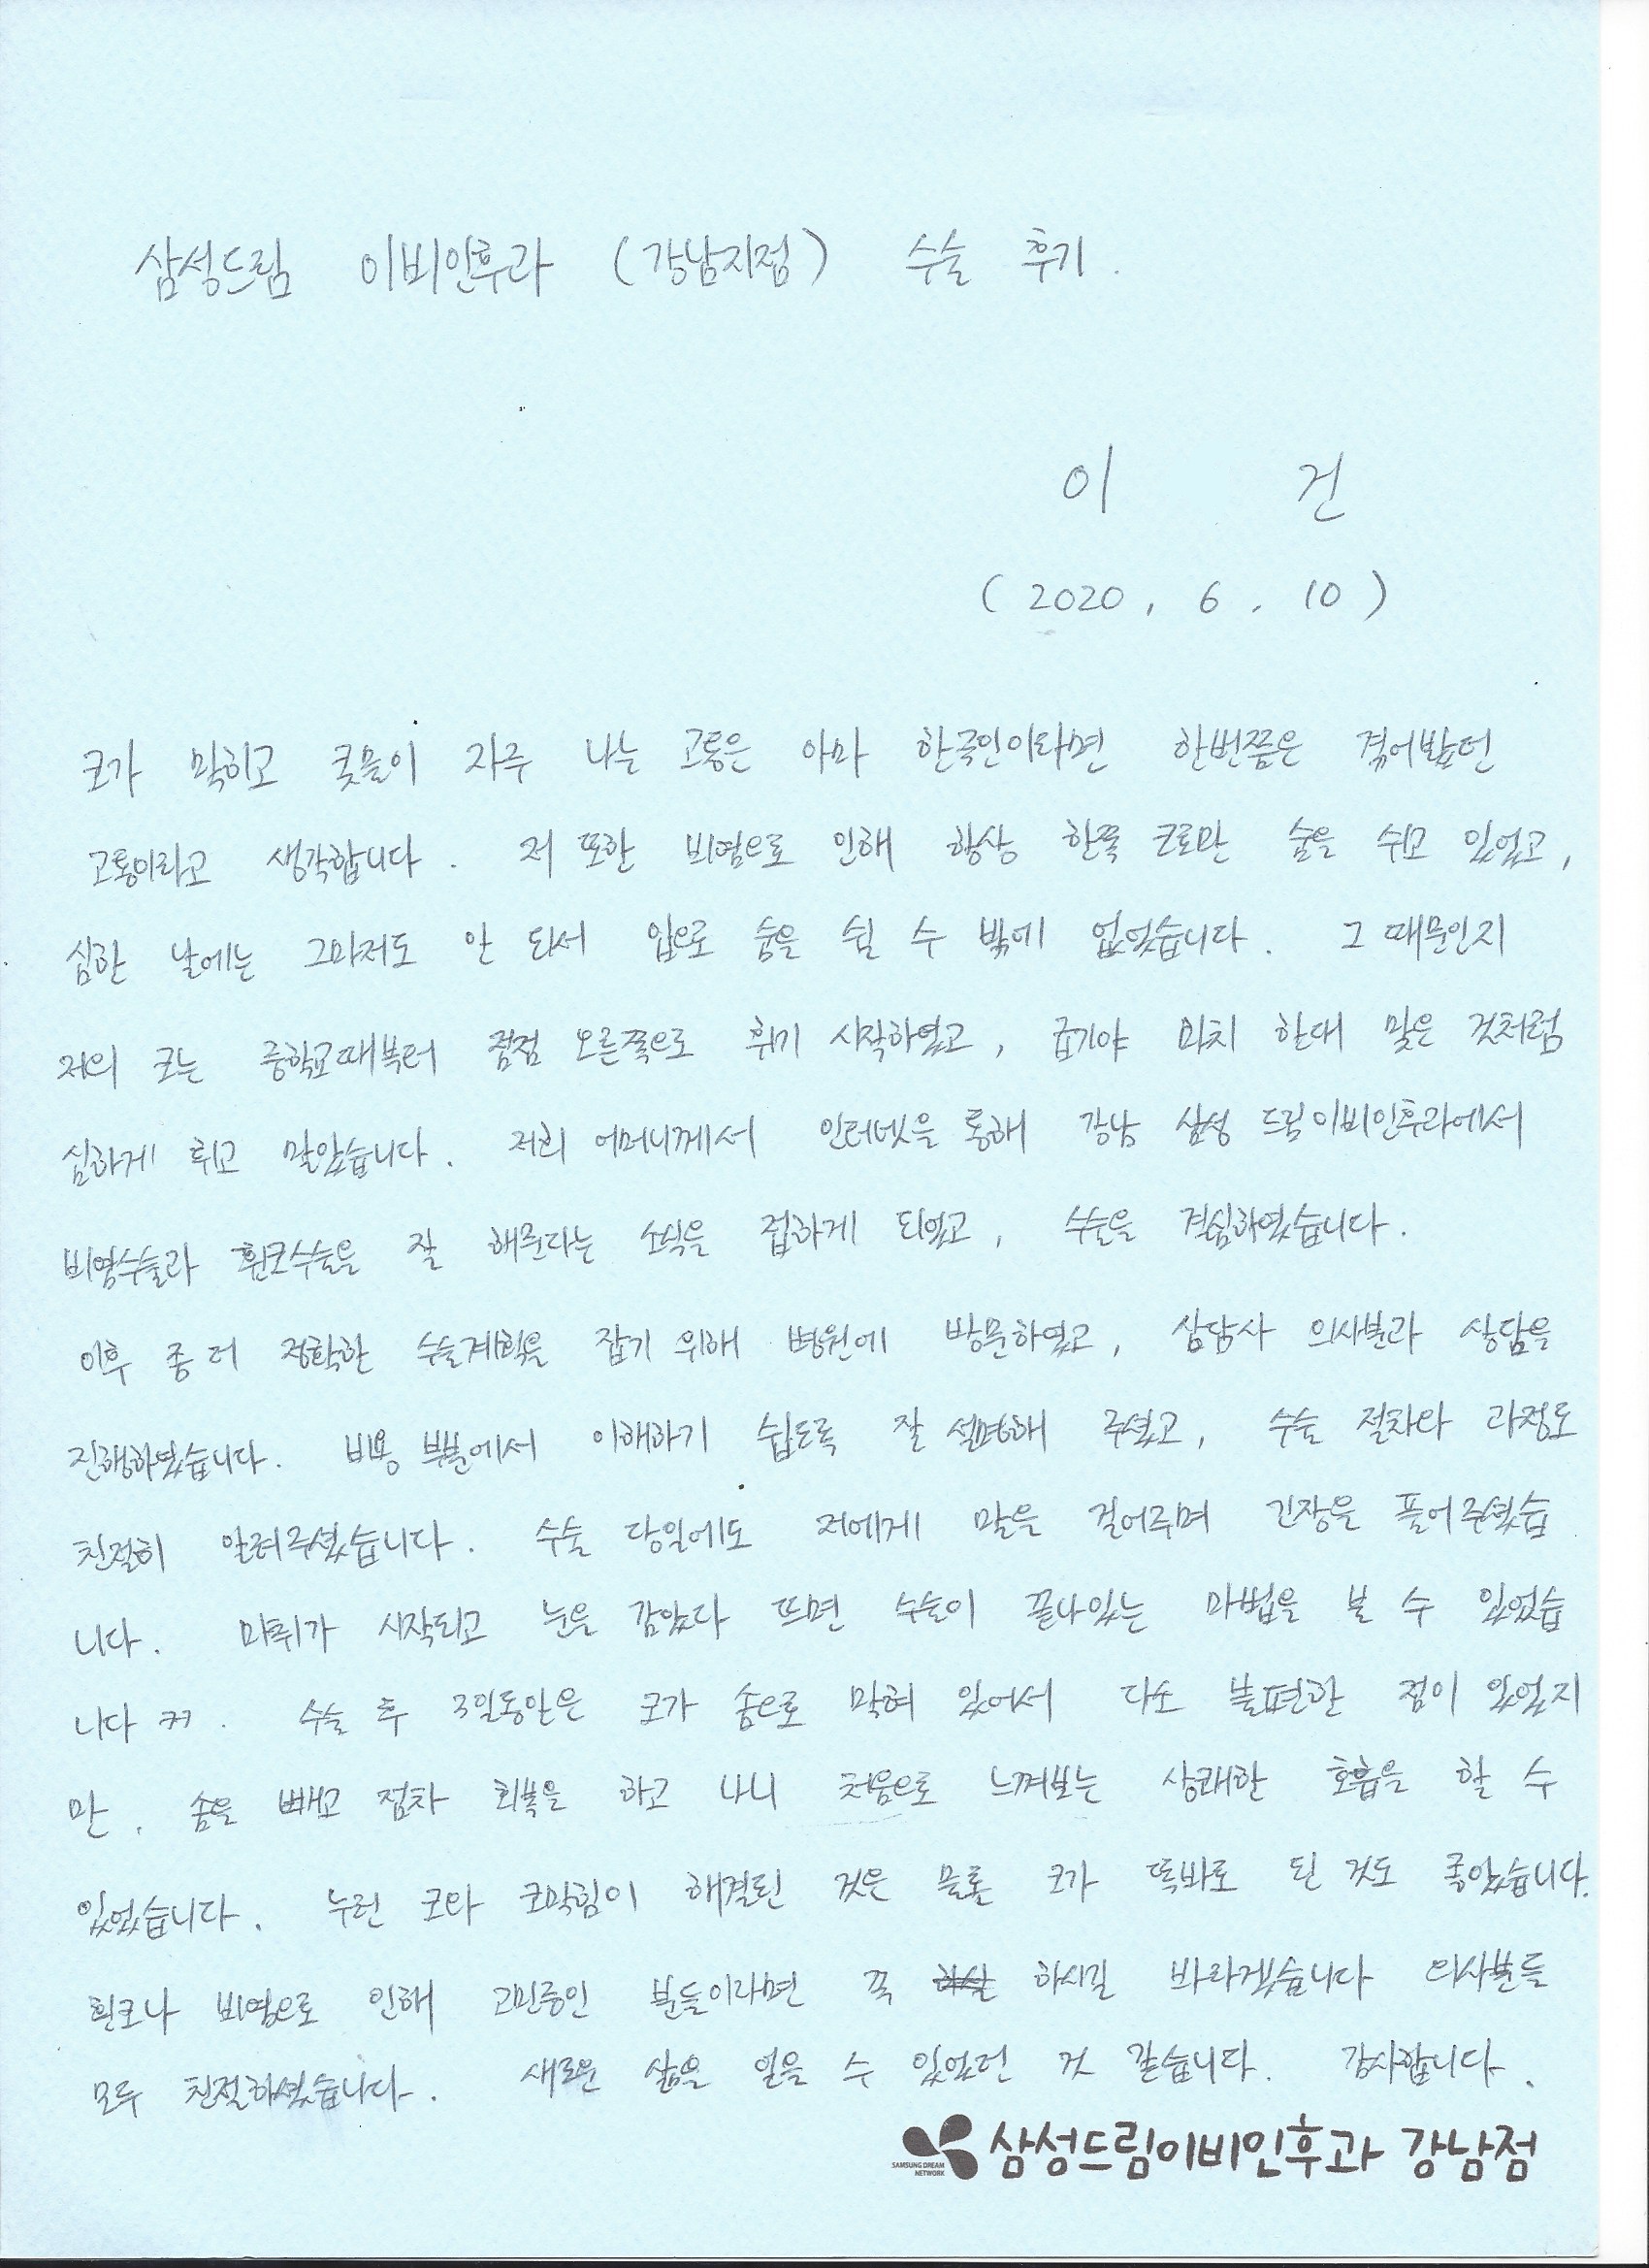 삼성드림 이비인후과 (강남지점) 수술 후기.
이 건
(2020. 6. 10)
코가 막히고 콧물이 자주 나는 고통은 아마 한국인이라면 한번쯤은 겪어봤던
고통이라고 생각합니다. 저 또한 비염으로 인해 항상 한쪽 코로만 숨을 쉬고 있었고,
심한 날에는 그마저도 안 되서 입으로 숨을 쉴 수 밖에 없었습니다. 그 때문인지
저의 코는 중학교때부터 점점 오른쪽으로 휘기 시작하였고, 급기야 마치 한대 맞은 것처럼
심하게 휘고 말았습니다. 저희 어머니께서 인터넷을 통해 강남 삼성 드림이비인후과에서
비염수술과 휜코수술을 잘 해준다는 소식을 접하게 되었고, 수술을 결심하였습니다.
이후 좀 더 정확한 수술계획을 잡기 위해 병원에 방문하였고, 상담사 의사분과 상담을
진행하였습니다. 비용 부분에서 이해하기 쉽도록 잘 설명해 주셨고, 수술 절차와 과정도
친절히 알려주셨습니다. 수술 당일에도 저에게 말을 걸어주며 긴장을 풀어주셨습
니다. 마취가 시작되고 눈을 감았다 뜨면 수술이 끝나있는 마법을 볼 수 있었습
니다 ㅋㅋ. 수술 후 3일동안은 코가 솜으로 막혀 있어서 다소 불편한 점이 있었지
만, 솜을 빼고 점차 회복을 하고 나니 처음으로 느껴보는 상쾌한 호흡을 할 수
있었습니다. 누런 코와 코막힘이 해결된 것은 물론 코가 똑바로 된 것도 좋았습니다.
휜코나 비염으로 인해 고민중인 분들이라면 꼭 하시길 바라겠습니다 의사분들
모두 친절하셨습니다. 새로운 삶을 얻을 수 있었던 것 같습니다. 감사합니다.
SAMSUNG DREAM NETWORK 삼성드림이비인후과 강남점